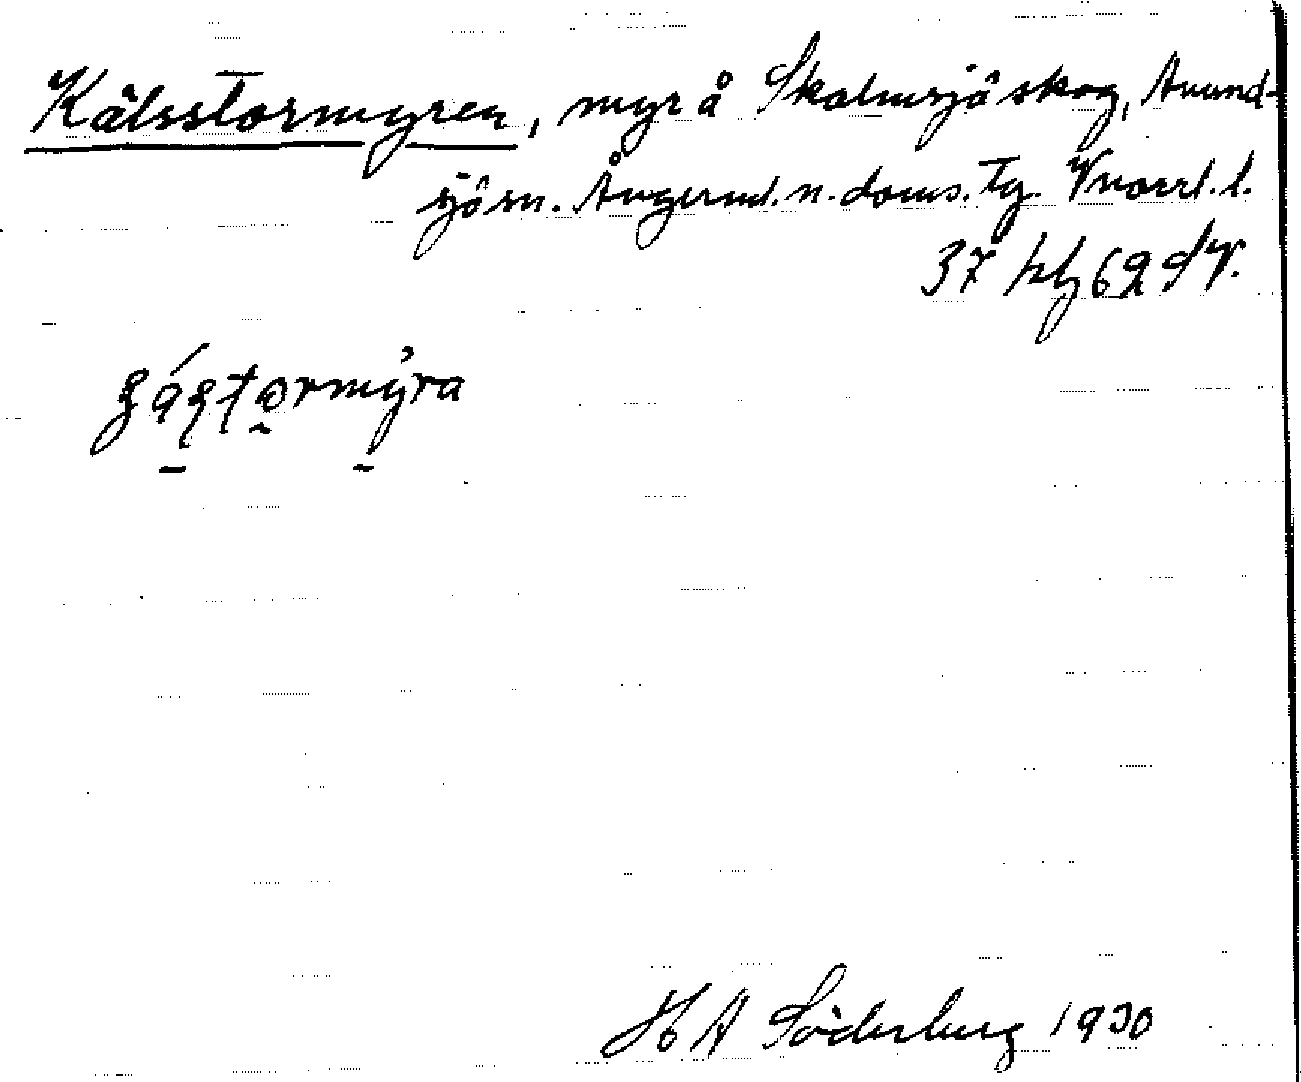 Kälsstormyren, myr å Skalmsjö skog, Anund-
sjö sn. Ångerml. n. doms. Tg. Vnorrl. l.
37 hf 62 dV.
H A Söderberg 1930